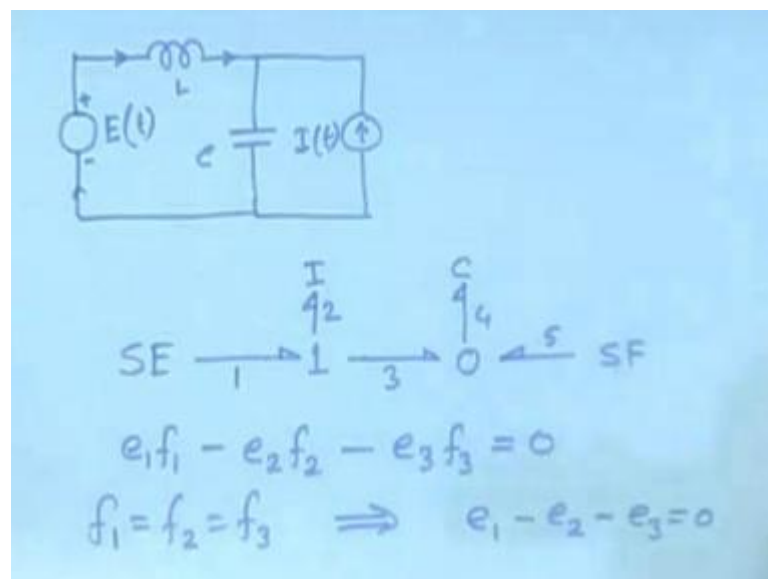 +
E(t)
-
L
C
I(t)
I
C
2
4
SE 1 1 3 0 5 SF
e₁f₁ - e₂f₂ - e₃f₃ = 0
f₁ = f₂ = f₃ ⟹ e₁ - e₂ - e₃ = 0